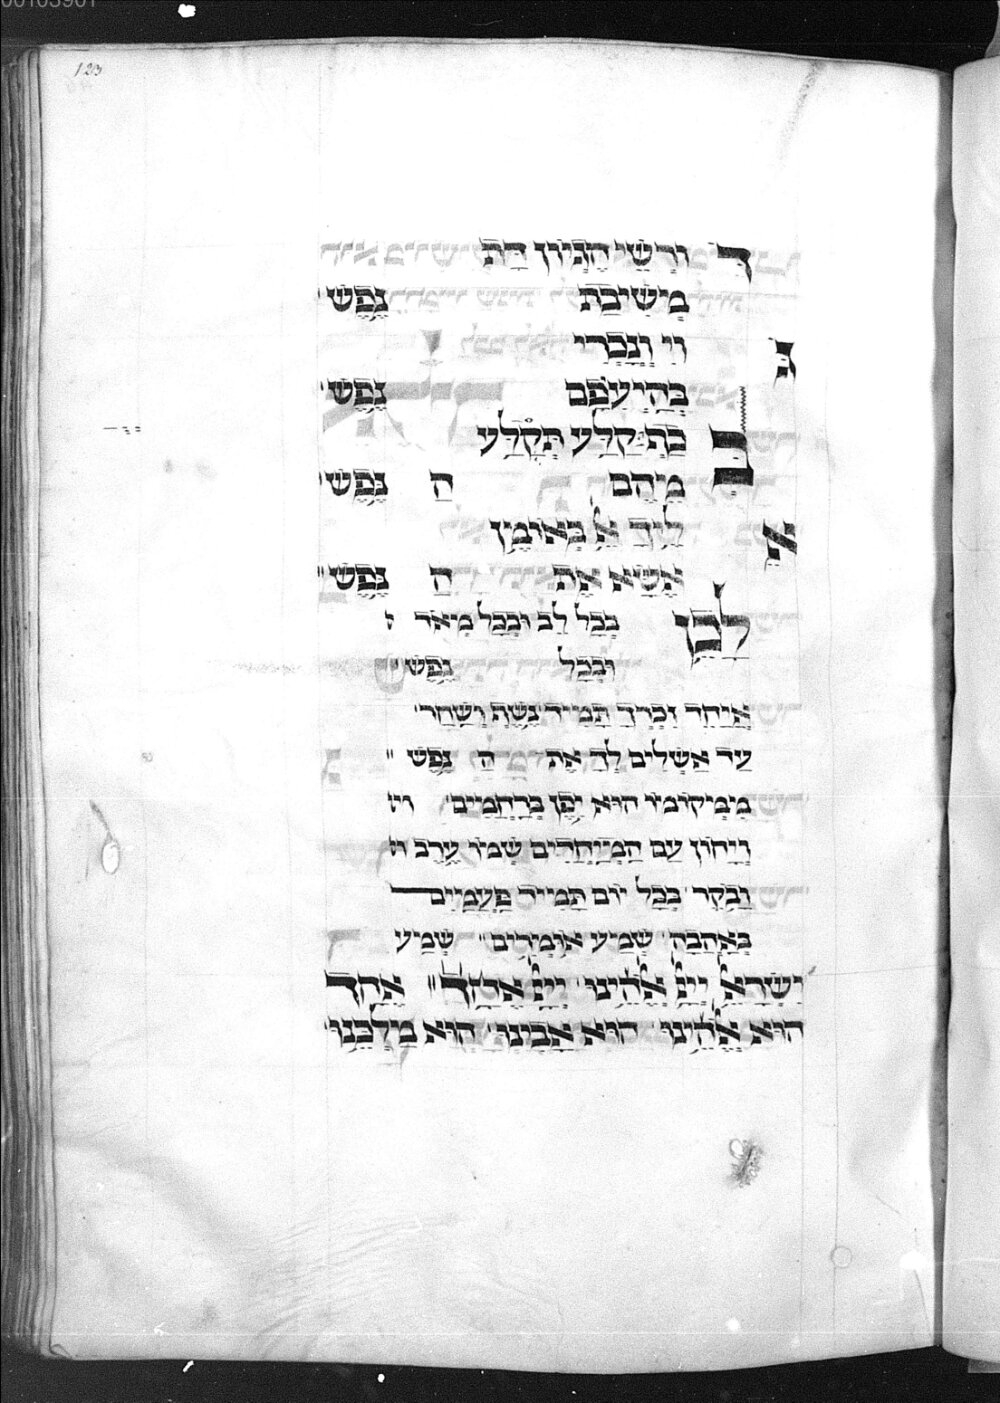 00103901
123
ד ורשי הגיון דת
משיבת נפש׳
ג וי ונכרי
בהיעפם נפש׳
ב בת קלע תקלע
מהם ה נפש׳
א ליד א כאומן
אשא את ה נפש״
לכן בכל לב ובכל מאד
ובכל נפש
איחד זכרך תמיד נשף ושחר׳
עד אשלים לך את ה נפש ״
ממקומו הוא יפן ברחמים׳
ויחון עם המיחדים שמו ערב
ובקר׳ בכל יום תמיד פעמים
באהבה׳ שמע אומרים״ שמע
ישראל ייי אלהינו׳ ייי אחד״ אחד
הוא אלהינו׳ הוא אבינו׳ הוא מלכנו׳